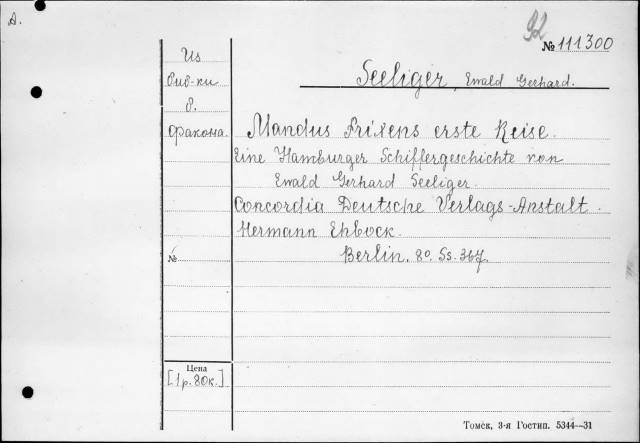 A.
92
№ 111300
Из
биб-ки
в.
факона.
Seeliger, Ewald Gerhard.
Mandus Frixens erste Reise.
Eine Hamburger Schiffergeschichte von
Ewald Gerhard Seeliger.
Concordia Deutsche Verlags-Anstalt.
Hermann Ehbock.
№
Berlin. 8º. Ss. 367.
Цена
[1 р. 80к.]
Томск, 3-я Гостип. 5344—31